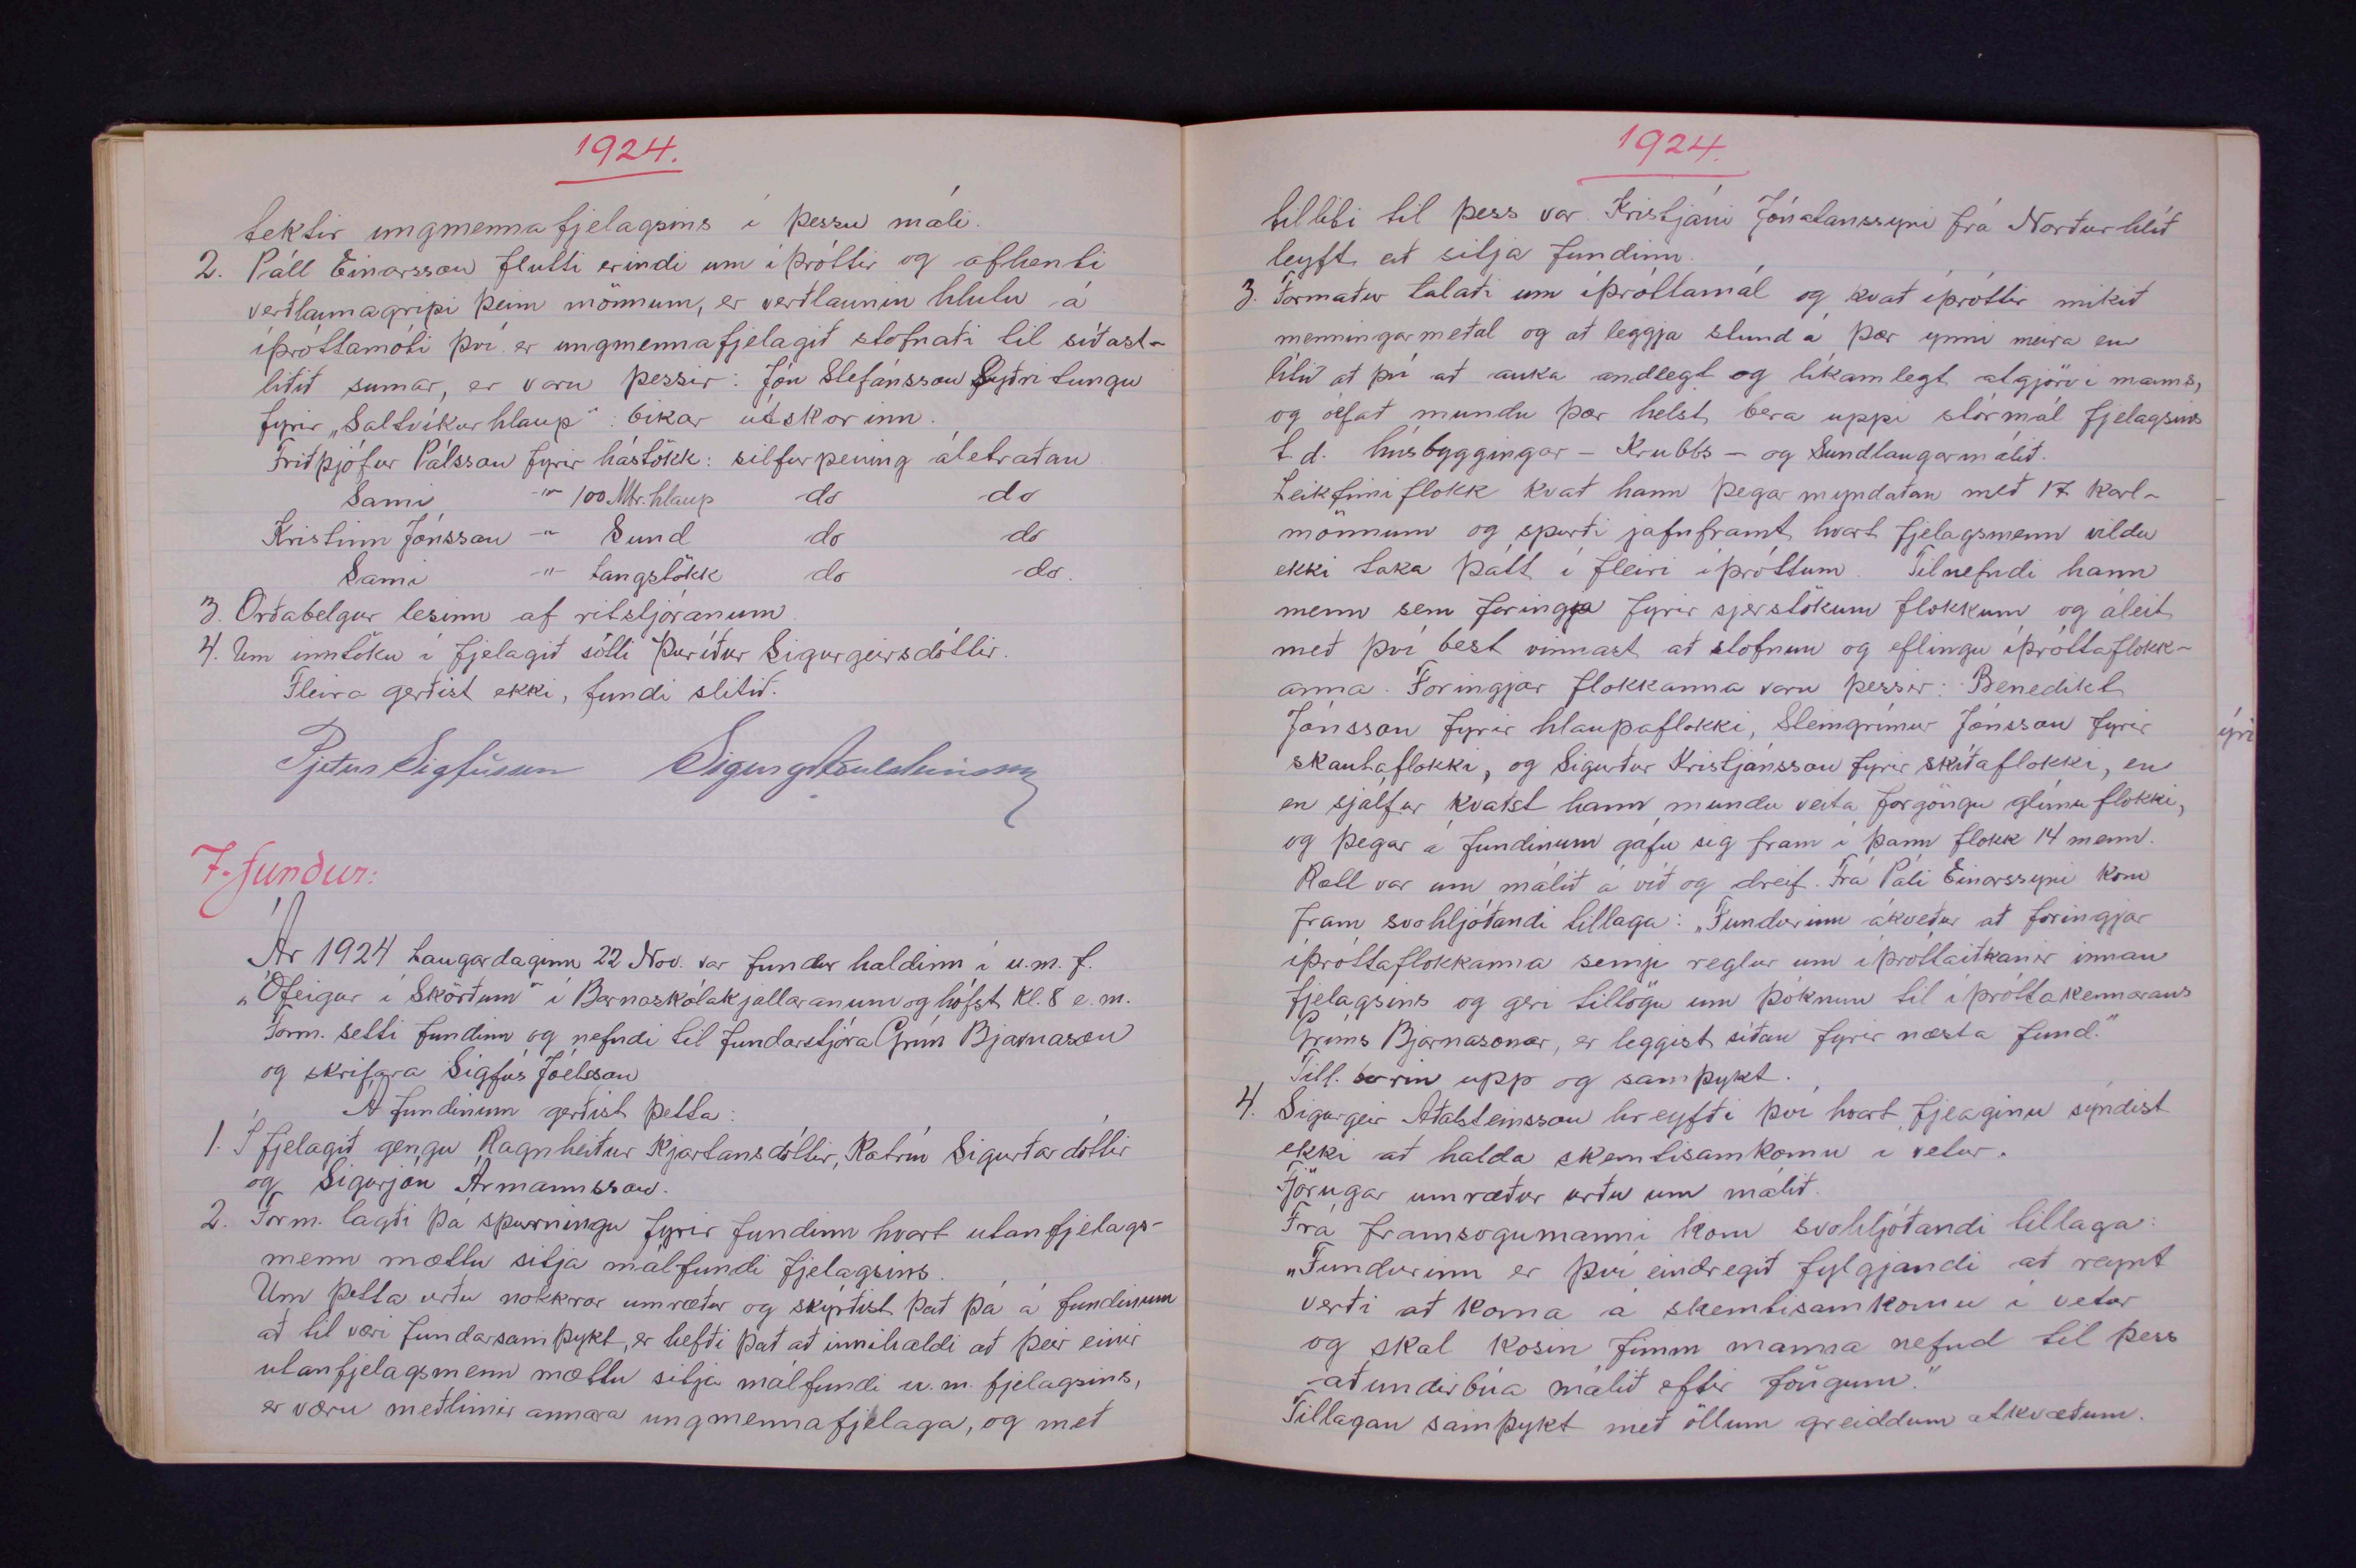 1924.
tektir ungmennafjelagsins í þessu máli.
2. Páll Einarsson flutti erindi um íþróttir og afhenti
verðlaunagripi þeim mönnum, er verðlaunin hlutu á
íþróttamóti því er ungmennafjelagið stofnaði til síðast-
liðið sumar, er voru þessir: Jón Stefánsson Syðritungu
fyrir „Saltvíkurhlaup": bikar útskorinn.
Friðþjófur Pálsson fyrir hástökk: silfurpening áletraðan
Sami -"- 100 Mtr. hlaup do do
Kristinn Jónsson -"- Sund do do
Sami -"- Langstökk do do.
3. Orðabelgur lesinn af ritstjóranum.
4. Um inntöku í fjelagið sótti Þuríður Sigurgeirsdóttir.
Fleira gerðist ekki, fundi slitið.
Pjetur Sigfússon Sigurg Aðalsteinsson
7. fundur:
Ár 1924 Laugardaginn 22 Nov. var fundur haldinn í u.m.f.
„Ófeigur í Skörðum" í Barnaskólakjallaranum og hófst kl. 8 e.m.
Form. setti fundinn og nefndi til fundarstjóra Grím Bjarnason
og skrifara Sigfús Jóelsson
Á fundinum gerðist þetta:
1. Í fjelagið gengu Ragnheiður Kjartansdóttir, Katrín Sigurðardóttir
og Sigurjón Ármannsson.
2. Form. lagði þá spurningu fyrir fundinn hvort utanfjelags-
menn mættu sitja málfundi fjelagsins.
Um þetta urðu nokkrar umræður og skýrðist það þá á fundinum
að til væri fundarsamþykt, er hefði það að innihaldi að þeir einir
utanfjelagsmenn mættu sitja málfundi u.m. fjelagsins,
er væru meðlimir annara ungmennafjelaga, og með
1924.
tilliti til þess var Kristjáni Jónatanssyni frá Norðurhlíð
leyft að sitja fundinn.
3. Formaður talaði um íþróttamál og kvað íþróttir mikið
menningarmeðal og að leggja stund á þær ynni meira en
lítið að því að auka andlegt og líkamlegt atgjörvi manns,
og ólfað mundu þær helst bera uppi stórmál fjelagsins
t.d. húsbyggingar - Krubbs - og Sundlaugarmálið.
Leikfimiflokk kvað hann þegar myndaðan með 17 karl-
mönnum og spurði jafnframt hvort fjelagsmenn vildu
ekki taka þátt í fleiri íþróttum. Tilnefndi hann
menn sem foringja fyrir sjerstökum flokkum og áleit
með því best vinnast að stofnun og eflingu íþróttaflokk-
anna. Foringjar flokkanna voru þessir: Benedikt
Jónsson fyrir hlaupaflokki, Steingrímur Jónsson fyrir
skautaflokki, og Sigurður Kristjánsson fyrir skíðaflokki, en
en sjálfur kvaðst hann mundu veita forgöngu glímuflokki,
og þegar á fundinum gáfu sig fram í þann flokk 14 menn.
Rætt var um málið á víð og dreif. Frá Páli Einarssyni kom
fram svohljóðandi tillaga: „Fundurinn ákveður að foringjar
íþróttaflokkanna semji reglur um íþróttaiðkanir innan
fjelagsins og geri tillögu um þóknun til íþróttakennarans
Gríms Bjarnasonar, er leggist síðan fyrir næsta fund."
Till. borin upp og samþykt.
4. Sigurgeir Aðalsteinsson hreyfði því hvort fjeaginu sýndist
ekki að halda skemtisamkomu í vetur.
Fjörugar umræður urðu um málið.
Frá framsögumanni kom svohljóðandi tillaga:
„Fundurinn er því eindregið fylgjandi að reynt
verði að koma á skemtisamkomu í vetur
og skal kosin fimm manna nefnd til þess
að undirbúa málið eftir föngum."
Tillagan samþykt með öllum greiddum atkvæðum.
ýri